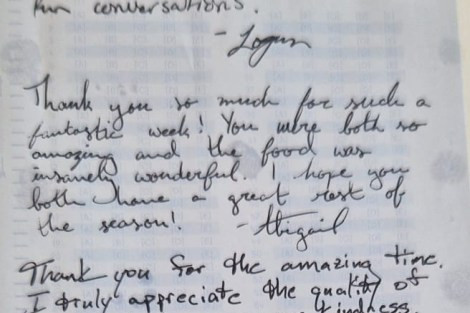 fun conversations.
- Logan
Thank you so much for such a
fantastic week! You were both so
amazing and the food was
insanely wonderful. I hope you
both have a great rest of
the season! - Abigail
Thank you for the amazing time.
I truly appreciate the quality of
kindness.